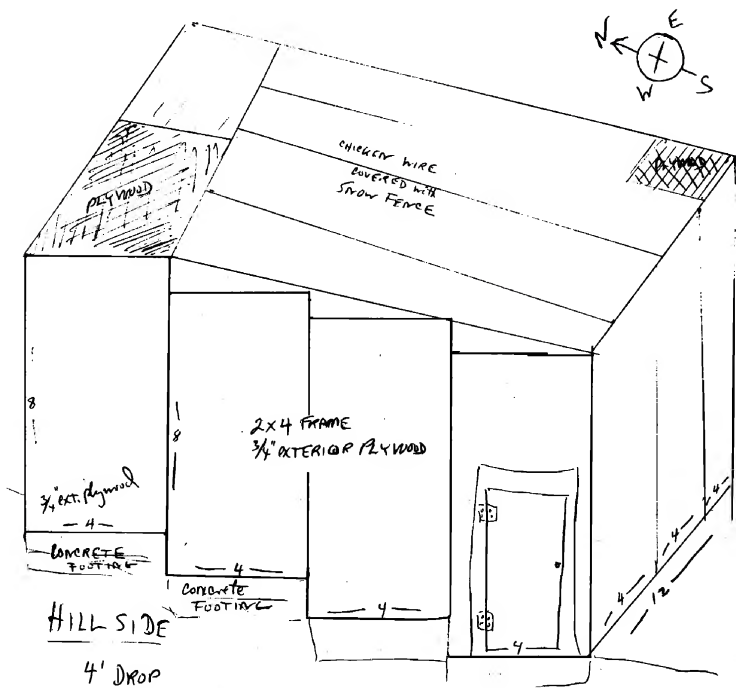 N
E
W
S
PLYWOOD
CHICKEN WIRE
COVERED WITH
SNOW FENCE
PLYWOOD
8
8
2x4 FRAME
3/4" EXTERIOR PLYWOOD
3/4" ext. plywood
4
CONCRETE
FOOTING
4
Concrete
FOOTING
4
4
4
4
4
12
HILL SIDE
4' DROP